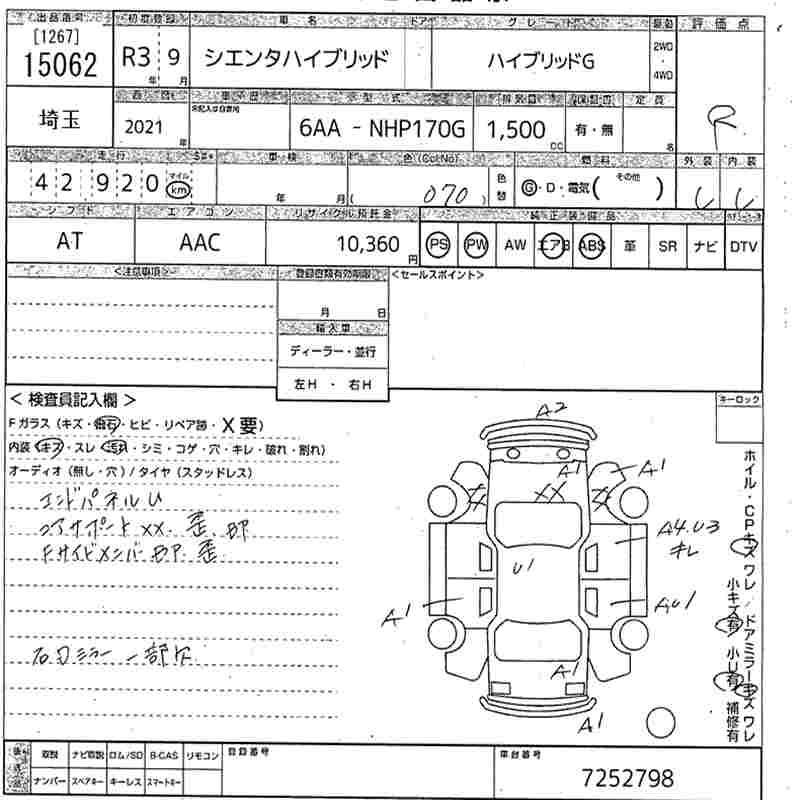 出品番号 初度登録 車名 ドア グレード 駆動 評価点
[1267]
15062 R3年 9月 シエンタハイブリッド ハイブリッドG 2WD・4WD R
埼玉 2021年 車歴 未記入は自家用 型式 6AA - NHP170G 排気量 1,500cc 保証書 有・無 定員 名
走行 車検 色(Col No) 燃料 外装 内装
42920 マイル km 年 月 ( 070 ) 色替 G・D・電気( その他 ) し し
シフト エアコン リサイクル預託金 純正装備品
AT AAC 10,360円 PS PW AW エアB ABS 革 SR ナビ DTV
<注意事項> 登録書類有効期限 <セールスポイント>
月 日
輸入車
ディーラー・並行
左H ・ 右H
<検査員記入欄> キーロック
Fガラス(キズ・飛石・ヒビ・リペア跡・X要)
内装(キズ・スレ・汚れ・シミ・コゲ・穴・キレ・破れ・割れ)
オーディオ(無し・穴)/タイヤ(スタッドレス)
エンドパネルU
コアサポートXX. 歪. BP
FサイドメンバBP. 歪
右ドアミラー 一部欠
A2
A1 A1
XX
A4.U3
キレ
U1
A1 AU1
A1
A1
ホイル・CPキズ ワレ/ドアミラーキズ ワレ
小キズ有 小U有 補修有
後送品 取説 ナビ取説 ロム/SD B-CAS リモコン 登録番号 車台番号
ナンバー スペアキー キーレス スマートキー 7252798